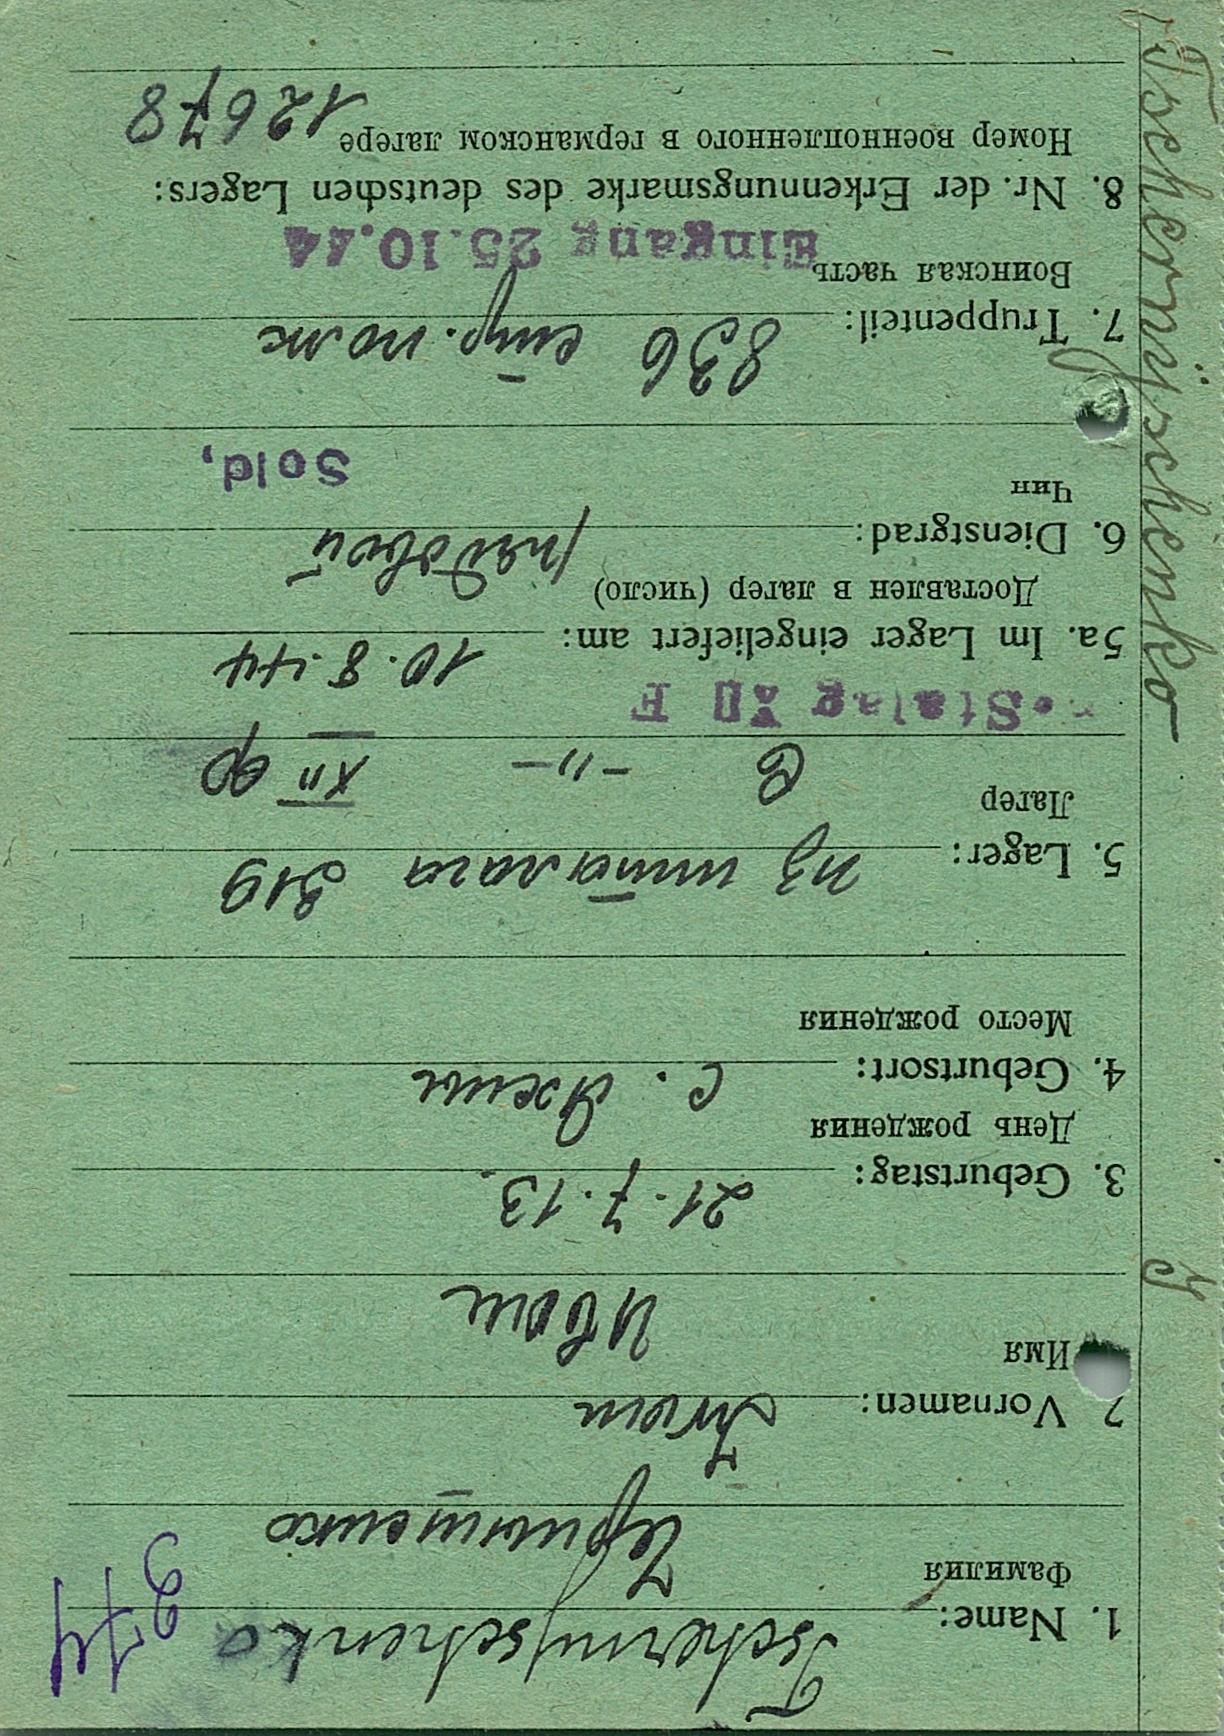 Tschernyschenko
1. Name:
Фамилия
Чернышенко
974
2 Vornamen: Iwan
Имя
Иван
3. Geburtstag: 21.7.13.
День рождения
4. Geburtsort: с.
Место рождения
5. Lager: из шталага 319
Лагер
в -"- XII ф
Stalag XII F
5a. Im Lager eingeliefert am: 10.8.44
Доставлен в лагер (число)
6. Dienstgrad: рядовой
Чин
Sold,
7. Truppenteil: 836 стр. полк
Воинская часть
Eingang 25.10.44
8. Nr. der Erkennungsmarke des deutschen Lagers:
Номер военнопленного в германском лагере 12678
Tschernyschenko J